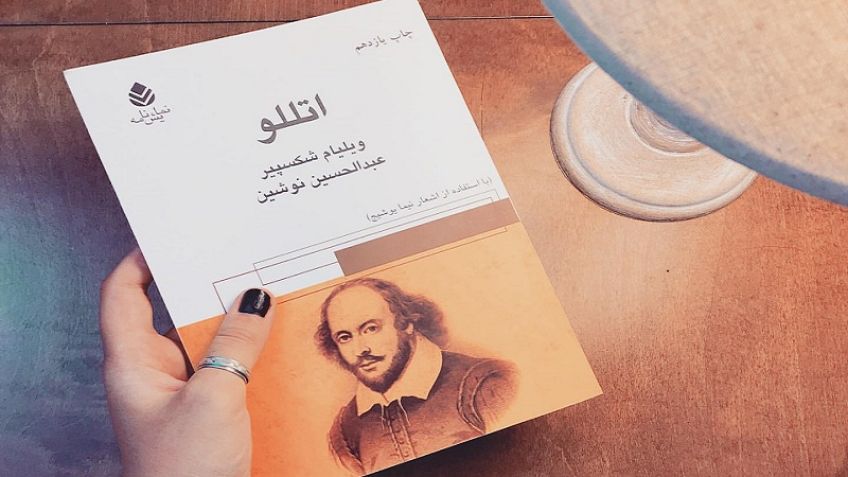 چاپ یازدهم
نمایش‌نامه
اتللو
ویلیام شکسپیر
عبدالحسین نوشین
(با استفاده از اشعار نیما یوشیج)